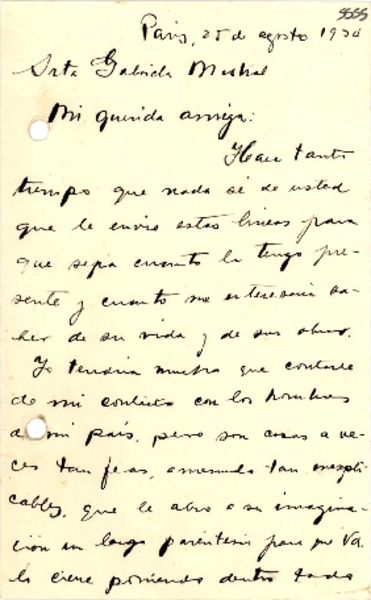 5555
París, 25 de agosto 1934
Srta Gabriela Mistral
Mi querida amiga:
Hace tanto
tiempo que nada sé de usted
que le envío estas líneas para
que sepa cuanto la tengo pre-
sente y cuanto me interesaría sa-
ber de su vida y de sus obras.
Yo tendría mucho que contarle
de mi contacto con los hombres
de mi país, pero son cosas a ve-
ces tan feas, a menudo tan inexpli-
cables, que le abro a su imagina-
ción un largo paréntesis para que Vd.
lo cierre poniendo dentro todo